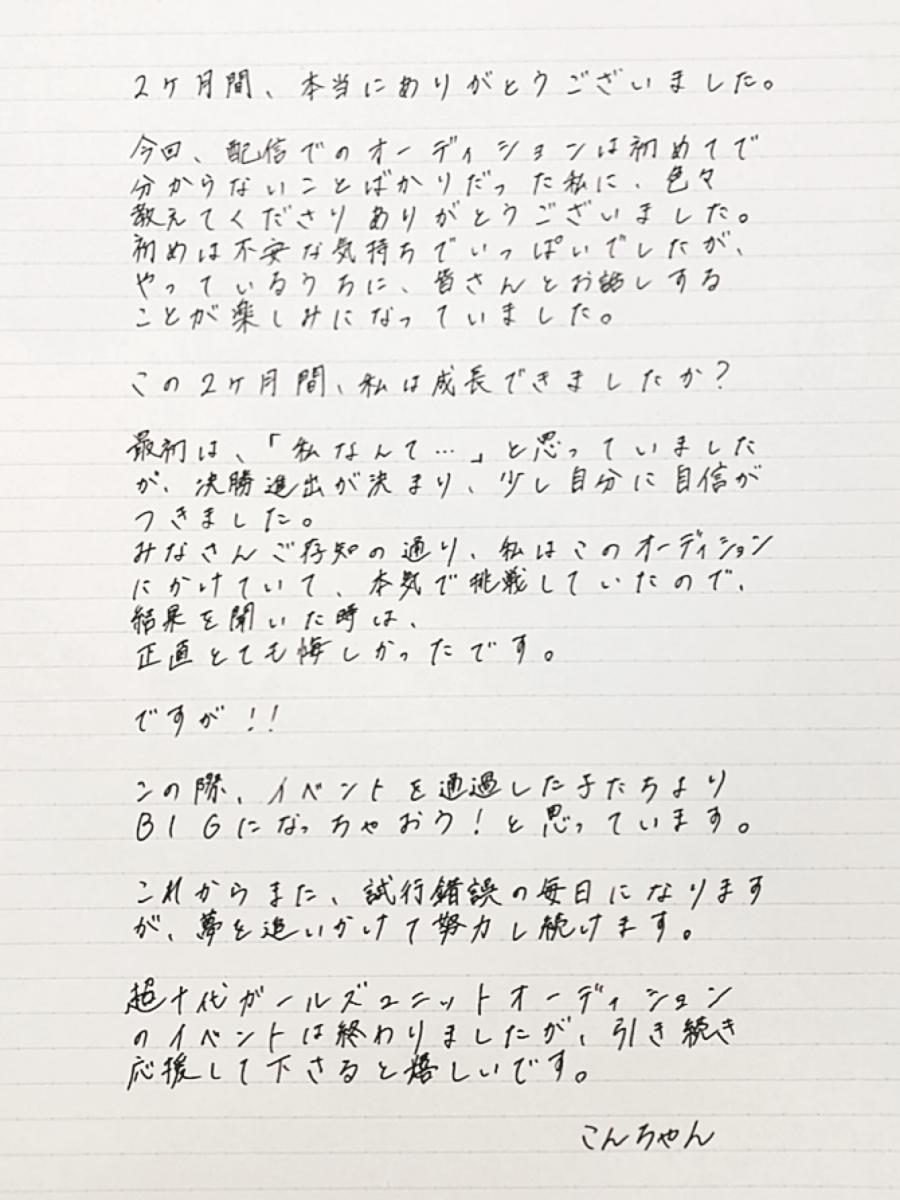 2ケ月間、本当にありがとうございました。
今回、配信でのオーディションは初めてで
分からないことばかりだった私に、色々
教えてくださりありがとうございました。
初めは不安な気持ちでいっぱいでしたが、
やっているうちに、皆さんとお話しする
ことが楽しみになっていました。
この2ケ月間、私は成長できましたか?
最初は、「私なんて…」と思っていました
が、決勝進出が決まり、少し自分に自信が
つきました。
みなさんご存知の通り、私はこのオーディション
にかけていて、本気で挑戦していたので、
結果を聞いた時は、
正直とても悔しかったです。
ですが!!
この際、イベントを通過した子たちより
BIGになっちゃおう!と思っています。
これからまた、試行錯誤の毎日になります
が、夢を追いかけて努力し続けます。
超十代ガールズユニットオーディション
のイベントは終わりましたが、引き続き
応援して下さると嬉しいです。
こんちゃん